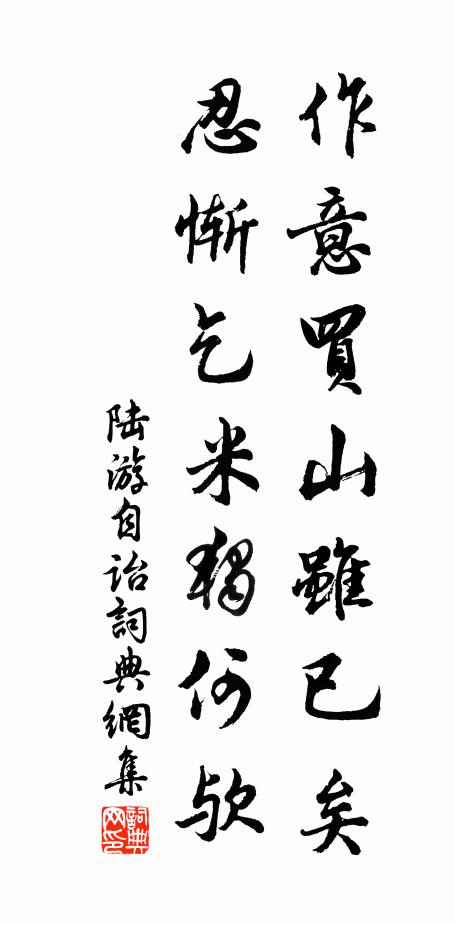 作意買山雖已矣
忍慚乞米獨何歟
陆游自詒詞典網集
詞典网印